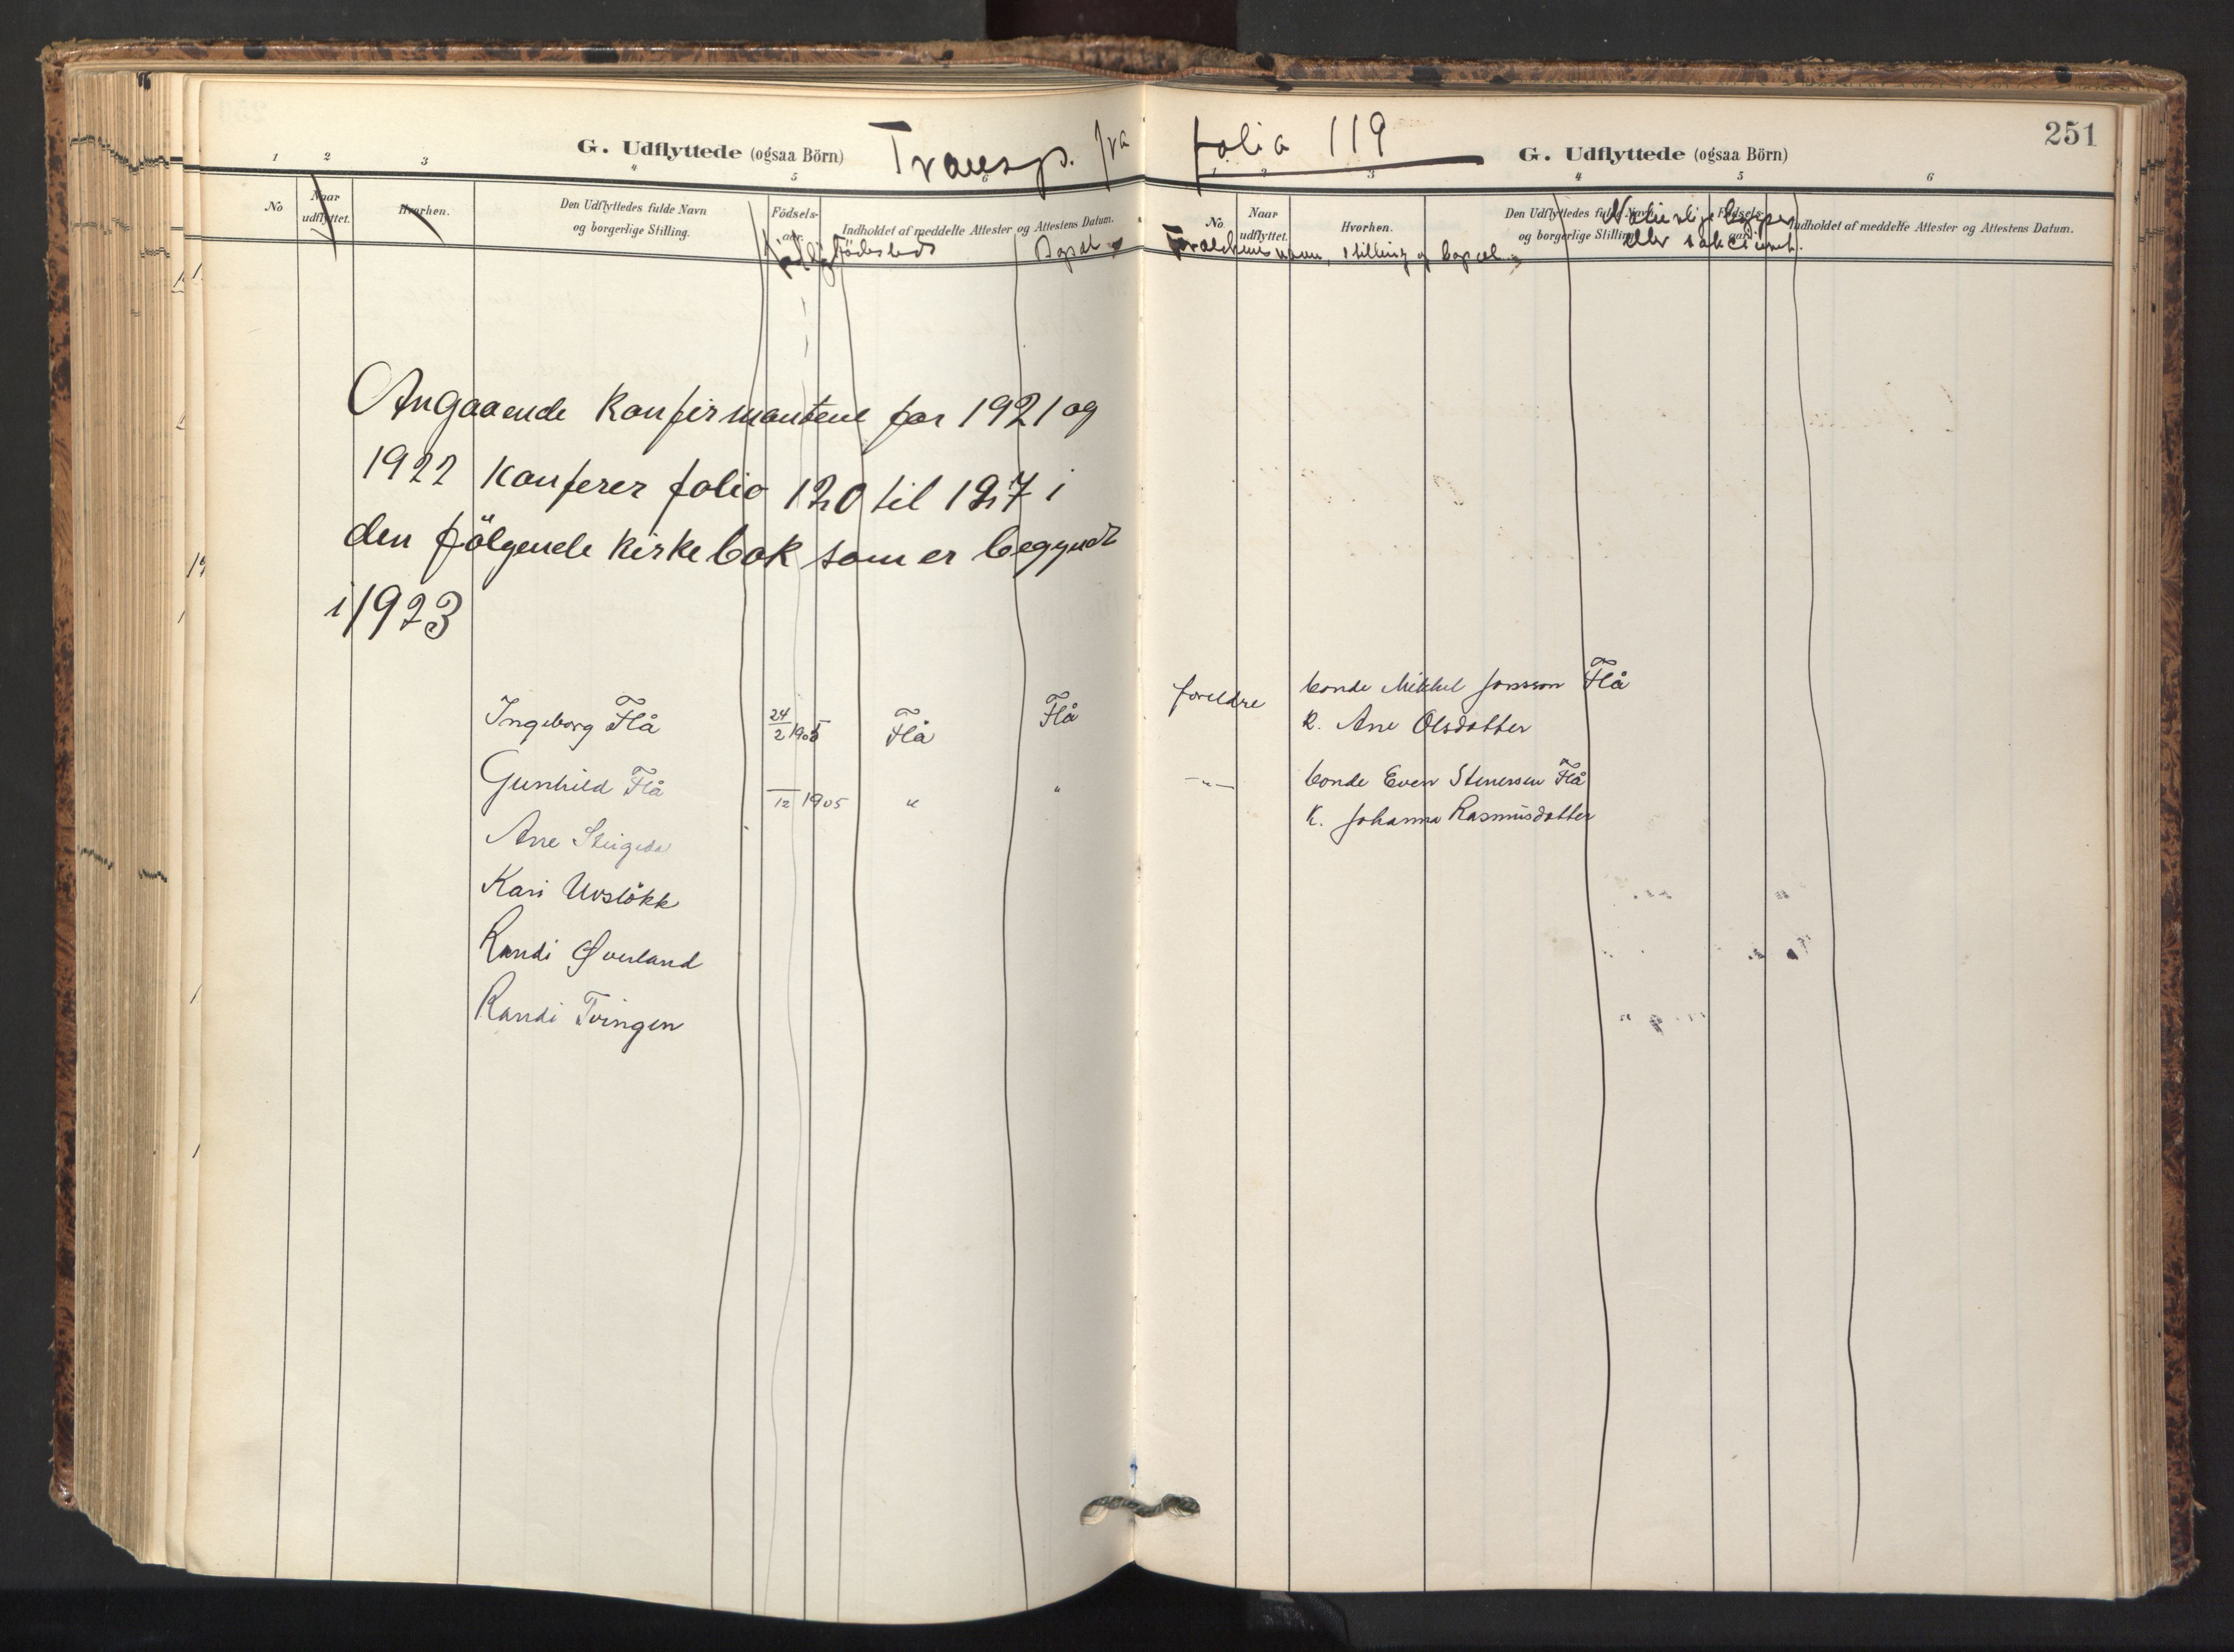 251
G. Udflyttede (ogsaa Börn) Transp. fra folio 119 G. Udflyttede (ogsaa Börn)
1 2 3 4 5 6
No Naar udflyttet. Hvorhen. Den Udflyttedes fulde Navn og borgerlige Stilling. Födsels-aar. Indholdet af meddelte Attester og Attestens Datum.
Födested Bopæl
1 2 3 4 5 6
No Naar udflyttet. Hvorhen. Den Udflyttedes fulde Navn og borgerlige Stilling. Födsels-aar. Indholdet af meddelte Attester og Attestens Datum.
Forældrenes navn, stilling og bopæl
Naturlige kopper
eller vakcineret.
Angaaende konfirmantene for 1921 og
1922 konferer folio 120 til 127 i
den følgende kirkebok som er begyndt
i 1923
Ingeborg Flå 24/2 1905 Flå Flå foreldre bonde Mikkel Jonsson Flå
K. Ane Olsdatter
Gunhild Flå /12 1905 " " -"- bonde Even Stenersen Flå
K. Johanna Rasmusdatter
Ane
Kari Uvsløkk
Randi Øverland
Randi Tvingen